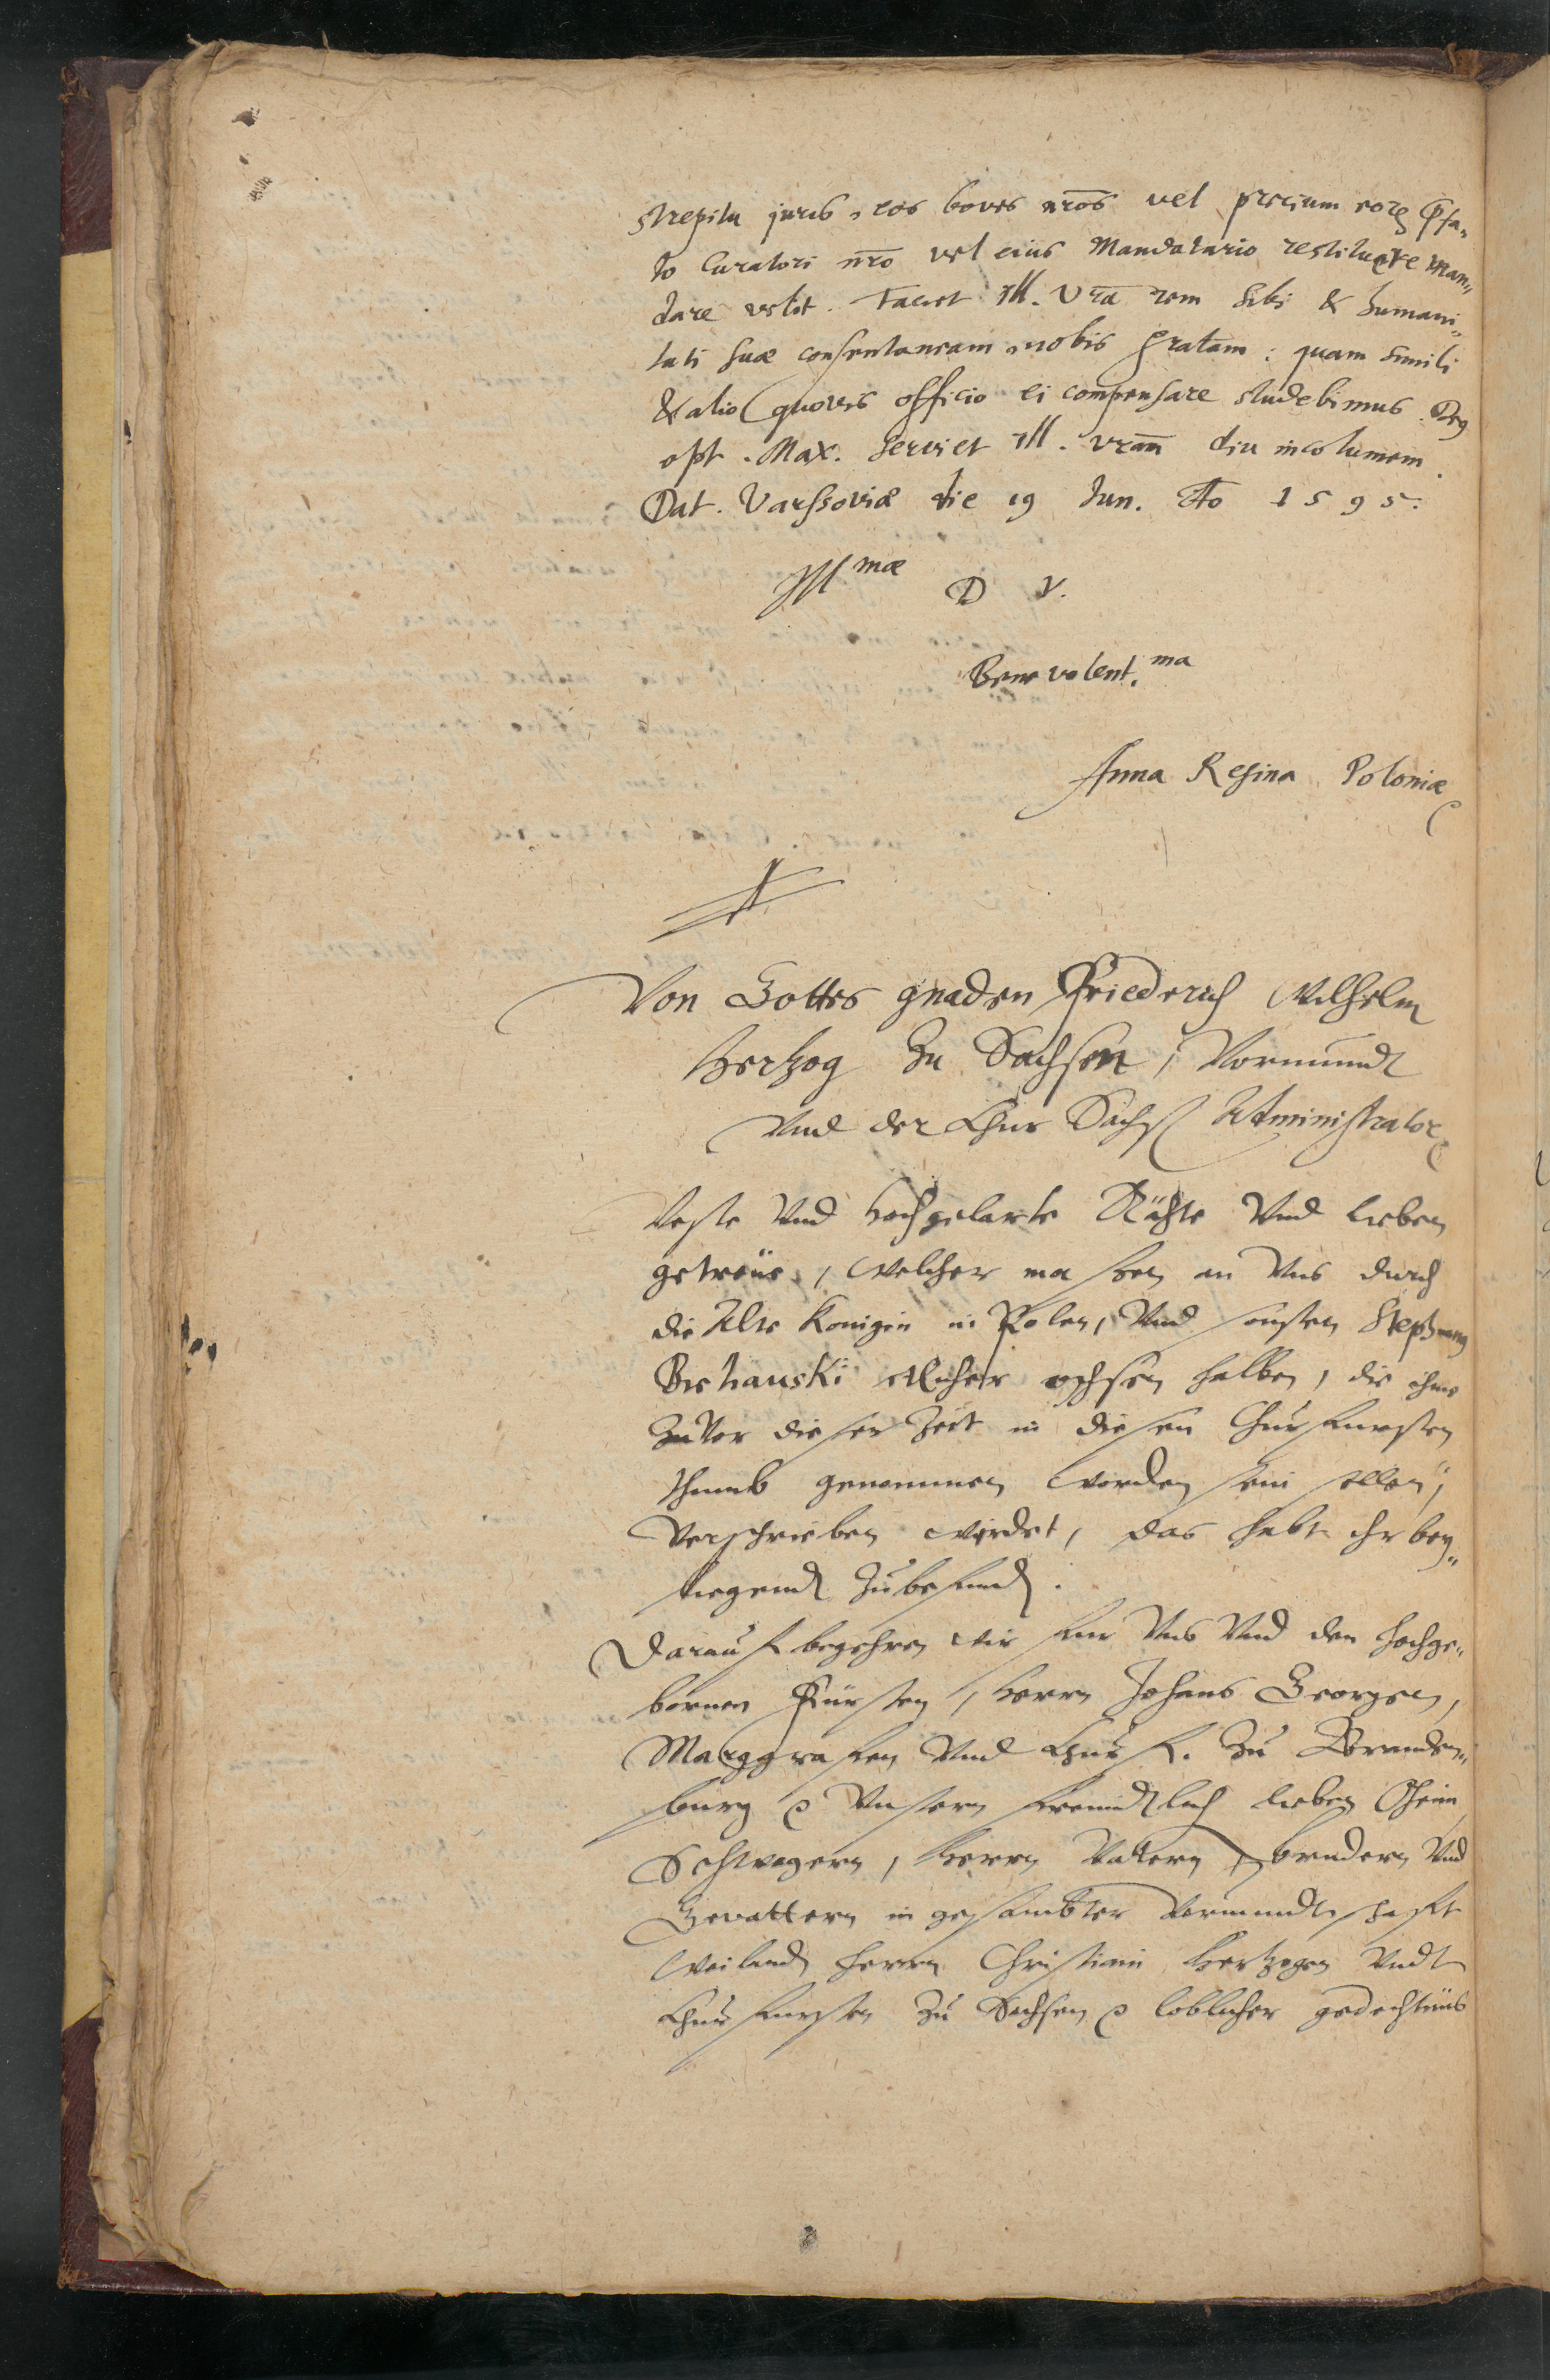 strepitu juris, eos boves nr̄os vel precium eorꝫ p̄fa„
to Curatori nr̄o vel eius Mandatario restituere man„
dare velit. Faciet Ill. Vr̄a rem sibi & humani„
tati suæ consentaneam, nobis gratam: quam simili
& alio quovis officio ei compensare studebimus. Deꝰ
opt. Max. servet Ill. Vr̄am diu incolumem.
Dat. Varssoviæ die 19 Jun. Ao 1595.
Ill mæ D V.
Benevolent. ma
Anna Regina Poloniæ
Von Gottes gnaden Friederich Wilhelm
Hertzog Zu Sachsen, Vormundt
Vnd der Chur Sachs Administrator
Veste Vnd Hochgelarte Räthe Vnd lieben
getreüe, Welcher massen an Vns durch
die Alte Konigin in Polen, Vnd sonsten Stephann
etlicher ochsen halben, die ihme
Zu Vor dieser Zeit in diesen Churfursten
thumb genommen worden sein sollen,
Verschrieben wirdet, das habt ihr bey„
liegend Zubefind.
Darauf begehren wir fur Vns Vnd den hochge„
bornen Fürsten, Herrn Johans Georgen,
Marggrafen Vnd Churf. Zu Branden„
burg Vnsern freundtlich lieben Oheim
Schwagern, Herrn Vatern, brudern Vnd
Gevattern in gesambter Vormundtschafft
Weilandt Herrn Christiani Hertzogen Vndt
Churfursten Zu Sachsen loblicher gedechtnus